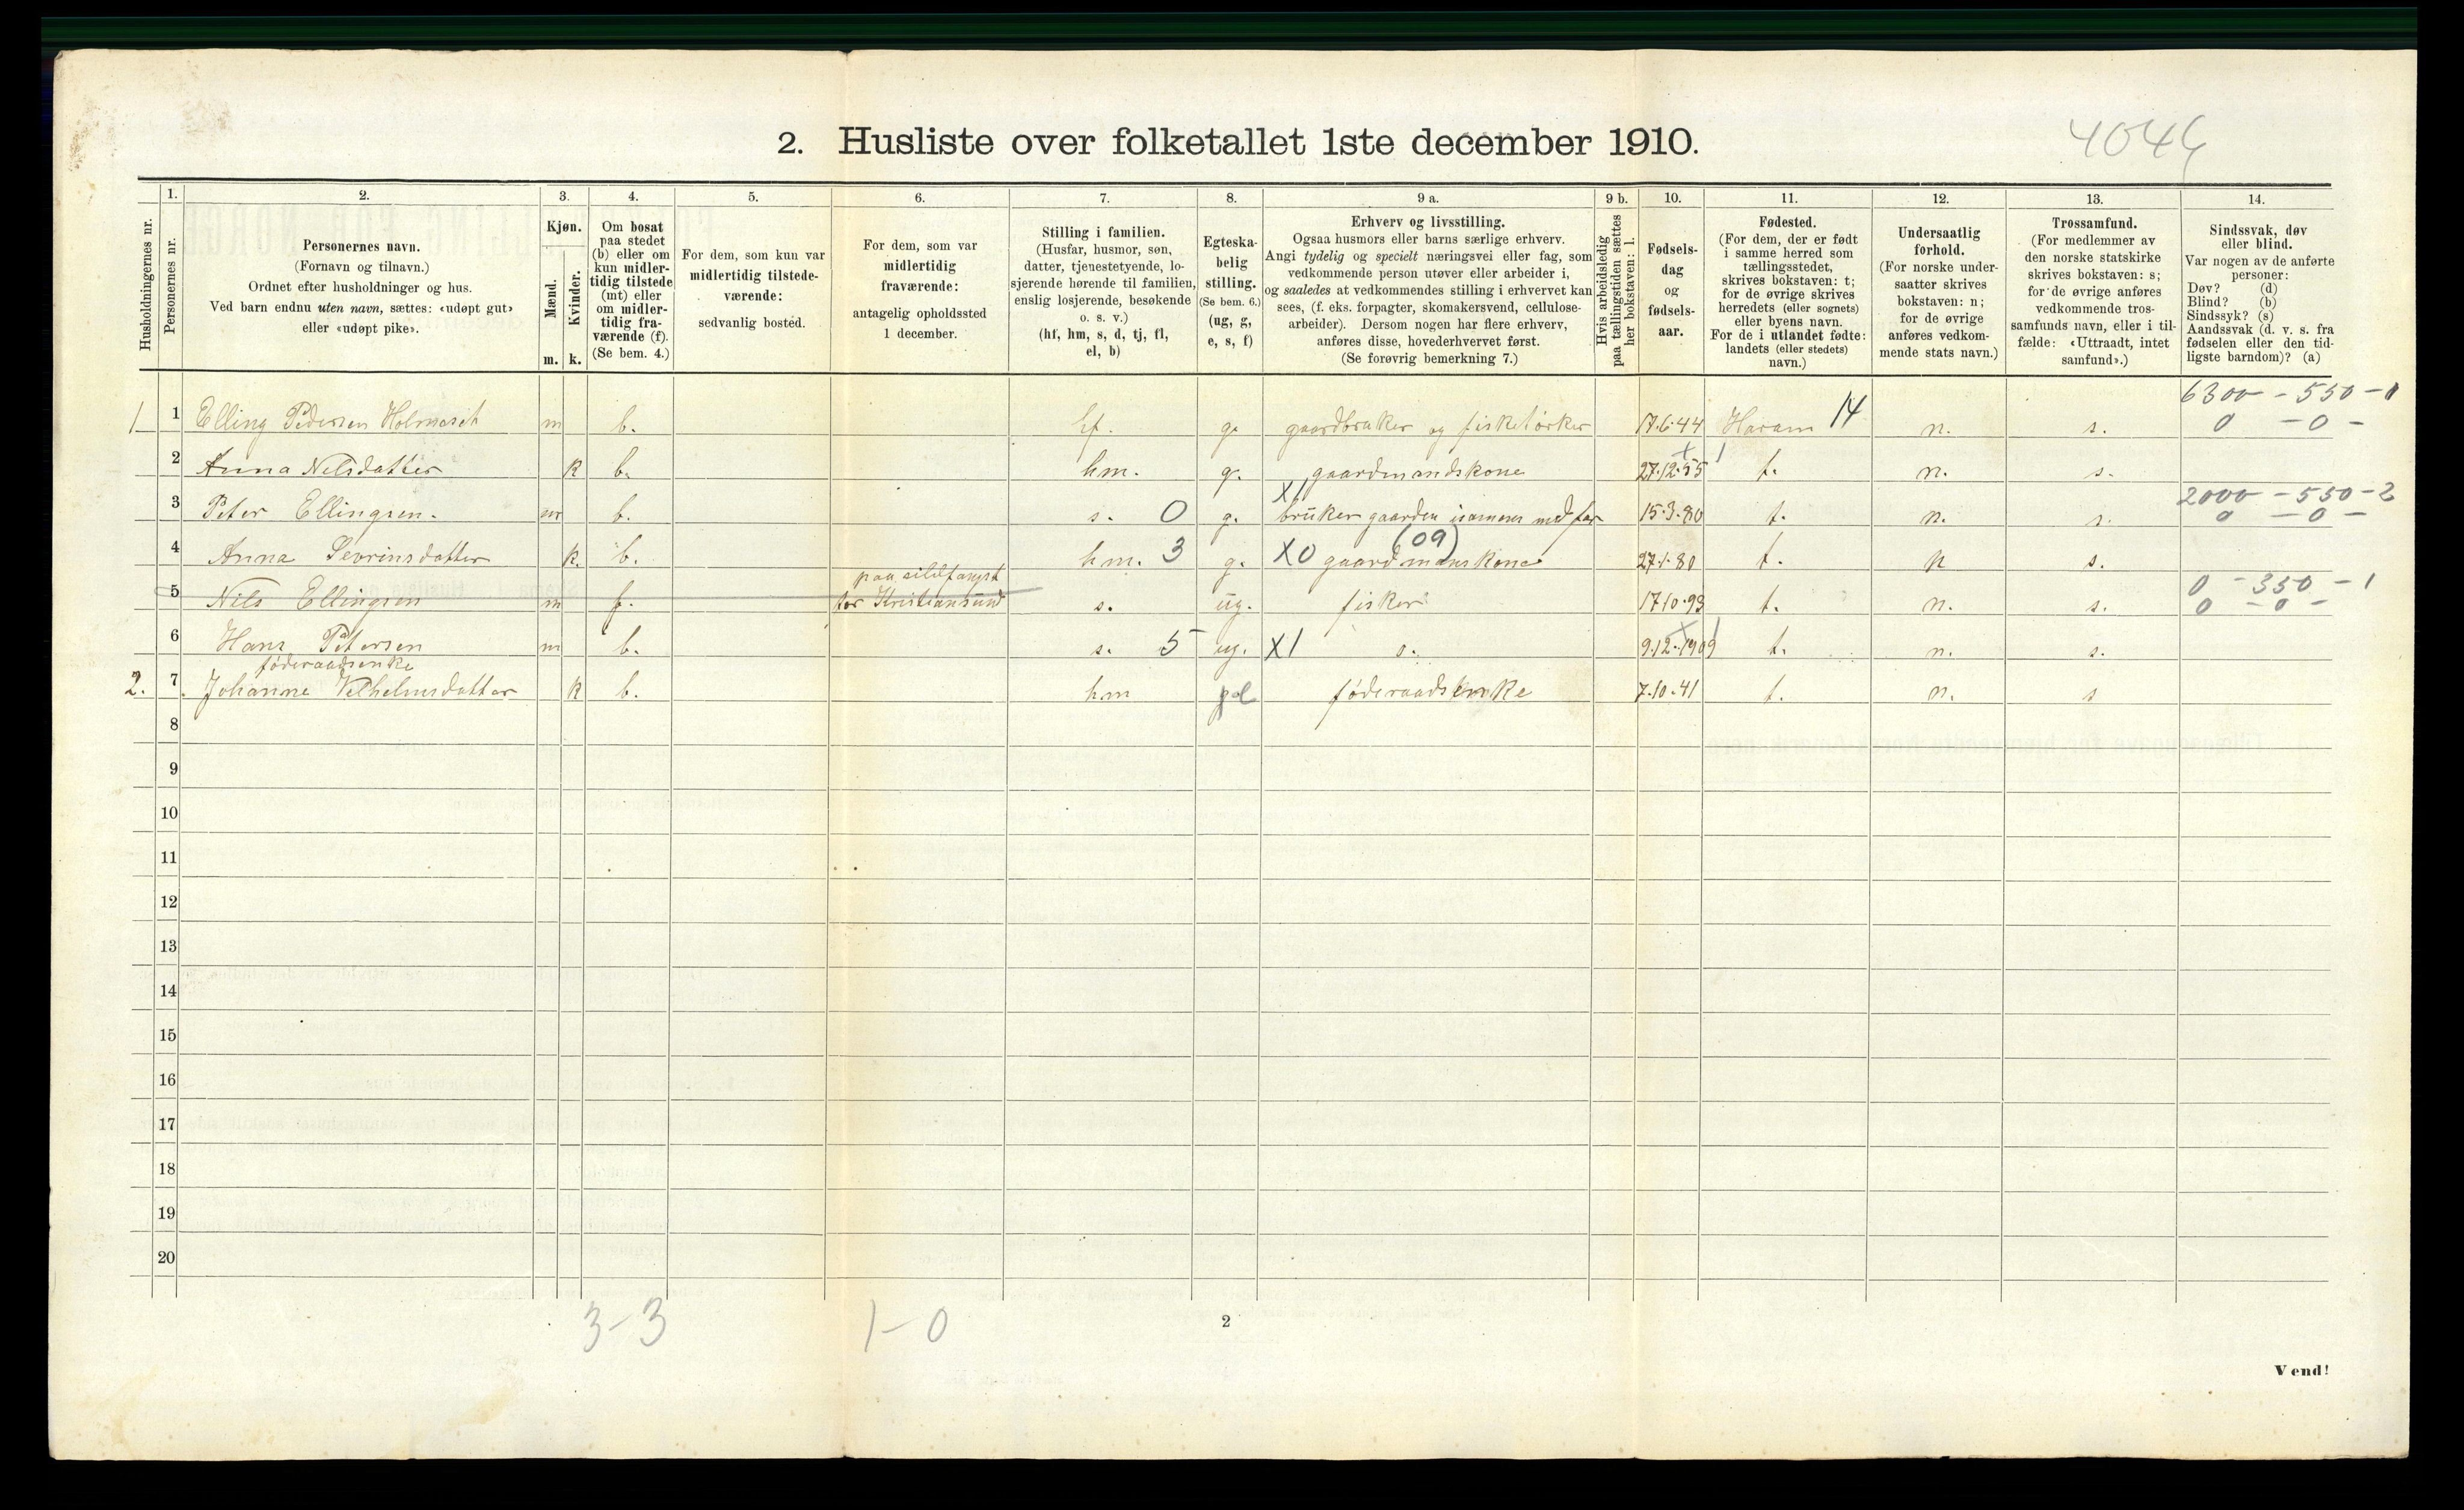 4044
2. Husliste over folketallet 1ste december 1910.
Husholdningernes nr.
1.
Personernes nr.
2.
Personernes navn.
(Fornavn og tilnavn.)
Ordnet efter husholdninger og hus.
Ved barn endnu uten navn, sættes: «udøpt gut»
eller «udøpt pike».
3.
Kjøn.
Mænd.
Kvinder.
m. k.
4.
Om bosat
paa stedet
(b) eller om
kun midler-
tidig tilstede
(mt) eller
om midler-
tidig fra-
værende (f).
(Se bem. 4.)
5.
For dem, som kun var
midlertidig tilstede-
værende:
sedvanlig bosted.
6.
For dem, som var
midlertidig
fraværende:
antagelig opholdssted
1 december.
7.
Stilling i familien.
(Husfar, husmor, søn,
datter, tjenestetyende, lo-
sjerende hørende til familien,
enslig losjerende, besøkende
o. s. v.)
(hf, hm, s, d, tj, fl,
el, b)
8.
Egteska-
belig
stilling.
(Se bem. 6.)
(ug, g,
e, s, f)
9 a.
Erhverv og livsstilling.
Ogsaa husmors eller barns særlige erhverv.
Angi tydelig og specielt næringsvei eller fag, som
vedkommende person utøver eller arbeider i,
og saaledes at vedkommendes stilling i erhvervet kan
sees, (f. eks. forpagter, skomakersvend, cellulose-
arbeider). Dersom nogen har flere erhverv,
anføres disse, hovederhvervet først.
(Se forøvrig bemerkning 7.)
9 b.
Hvis arbeidsledig
paa tællingstiden sættes
her bokstaven: l.
10.
Fødsels-
dag
og
fødsels-
aar.
11.
Fødested.
(For dem, der er født
i samme herred som
tællingsstedet,
skrives bokstaven: t;
for de øvrige skrives
herredets (eller sognets)
eller byens navn.
For de i utlandet fødte:
landets (eller stedets)
navn.)
12.
Undersaatlig
forhold.
(For norske under-
saatter skrives
bokstaven: n;
for de øvrige
anføres vedkom-
mende stats navn.)
13.
Trossamfund.
(For medlemmer av
den norske statskirke
skrives bokstaven: s;
for de øvrige anføres
vedkommende tros-
samfunds navn, eller i til-
fælde: «Uttraadt, intet
samfund».)
14.
Sindssvak, døv
eller blind.
Var nogen av de anførte
personer:
Døv? (d)
Blind? (b)
Sindssyk? (s)
Aandssvak (d. v. s. fra
fødselen eller den tid-
ligste barndom)? (a)
6300 - 550 - 1
1 1 Elling Pedersen Holmeset m b. hf. g. gaardbruker og fisketørker 17.6.44 Haram 14 n. s. 0 - 0 -
2 Anna Nelsdatter k b. hm. g. gaardmandskone 27.12.55 t. n. s.
2000 - 550 - 2
3 Peter Ellingsen. m b. s. 0 g. X1 bruker gaarden isammen med far 15.3.80 t. n. s. 0 - 0 -
(09)
4 Anna Sevrinsdatter k. b. hm. 3 g. X0 gaardmanskone 27.1.80 t. n s.
paa sildfangst 0 - 350 - 1
5 Nils Ellingsen m f. for Kristiansund s. ug. fisker 17.10.93 t. n. s. 0 - 0 -
6 Hans Petersen m b. s. 5 ug. X1 s. 9.12.1909 t. n. s.
føderaadsenke
2. 7 Johanne Vilhelmsdatter k b. hm føderaadsenke 7.10.41 t. n. s
8
9
10
11
12
13
14
15
16
17
18
19
20
3-3 1-0
2
Vend!